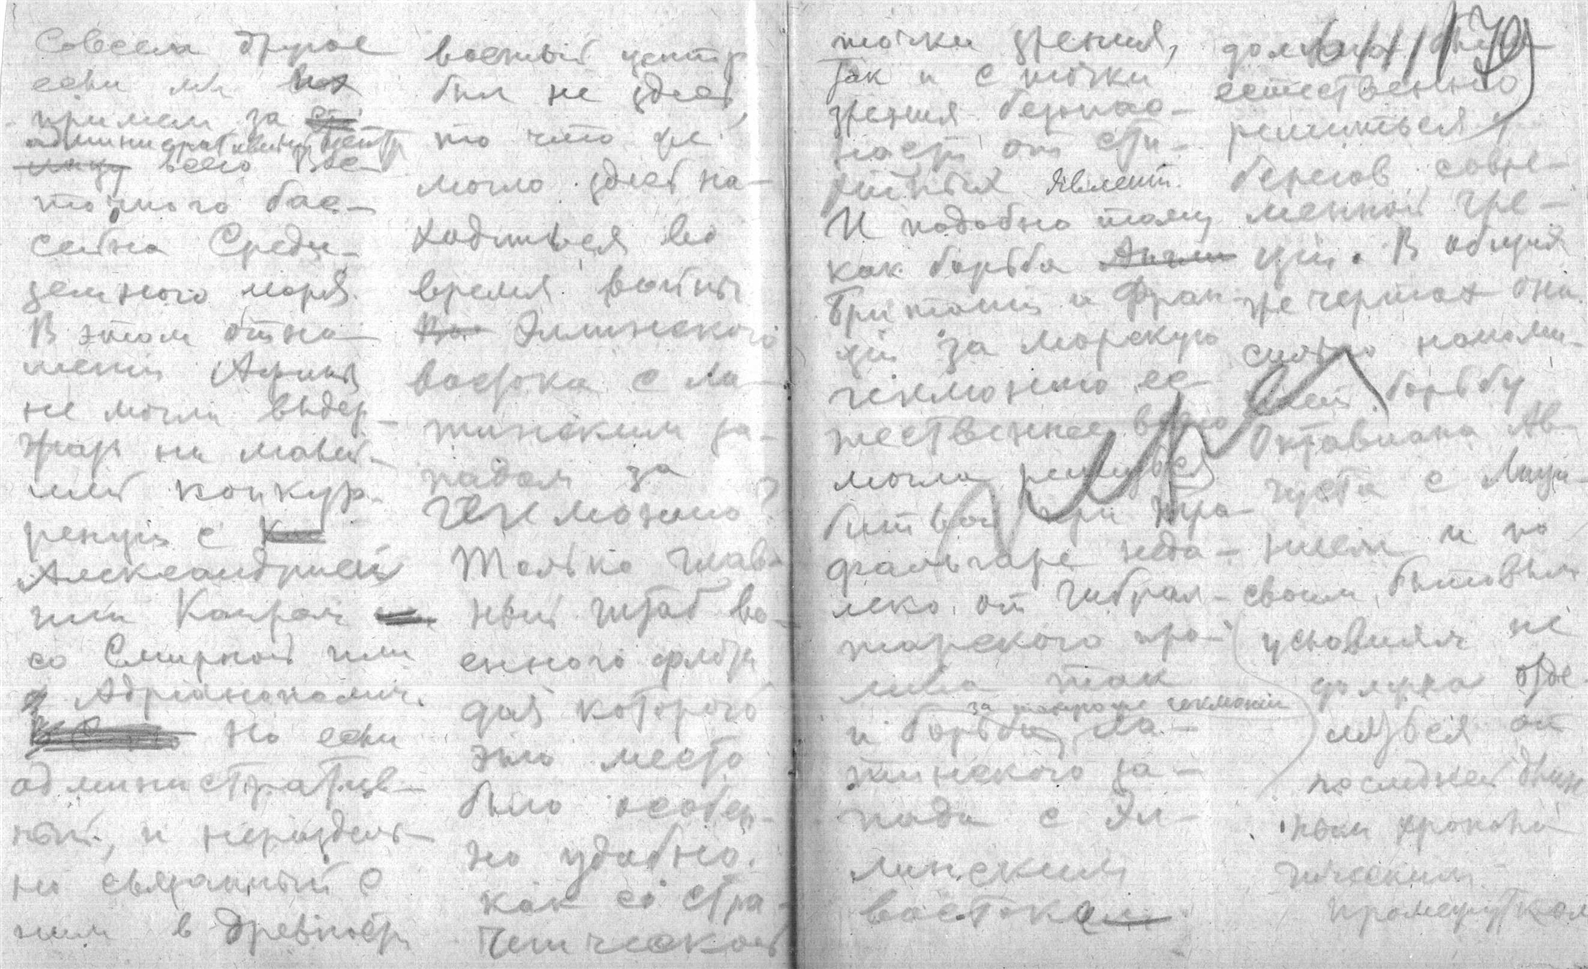 Совсем другое
если мы их
примем за
административный центр
всего Вос
точного бас-
сейна Среди-
земного моря.
В этом отно-
шении Афины
не могли выдер-
жать ни малей-
шей конкур-
ренции с
Александрией
или Каиром
со Смирной или
с Адрианополем.
Но если
административ-
ный, и нераздель-
но связанный с
ним в древности
военный центр
был не здесь,
то что же
могло здесь на-
ходиться во
время войны
Эллинского
востока с ла-
тинским за-
падом за
гегемонию?
Только глав-
ный штаб во-
енного флота
для которого
это место
было особен-
но удобно,
как со стра-
тегической
точки зрения,
так и с точки
зрения безопас-
ности от сти-
хийных явлений.
И подобно тому
как борьба Англи
Британии и Фран-
ции за морскую
гегемонию ес-
тественнее всего
могла решиться
битвой при Тра-
фальгаре неда-
леко от Гибрал-
тарского про-
лива так
за такую же гегемонию
и борьба ла-
тинского за-
пада с Эл-
линским
востоком
должна была
естественно
решиться у
берегов совре-
менной Гре-
ции. В общих
же чертах она
сильно напоми-
нает борьбу
Октавиана Ав-
густа с Анто-
нием и по
своим бытовым
условиям не
должна отде-
ляться от
последней большим
хронологи-
ческим
промежутком